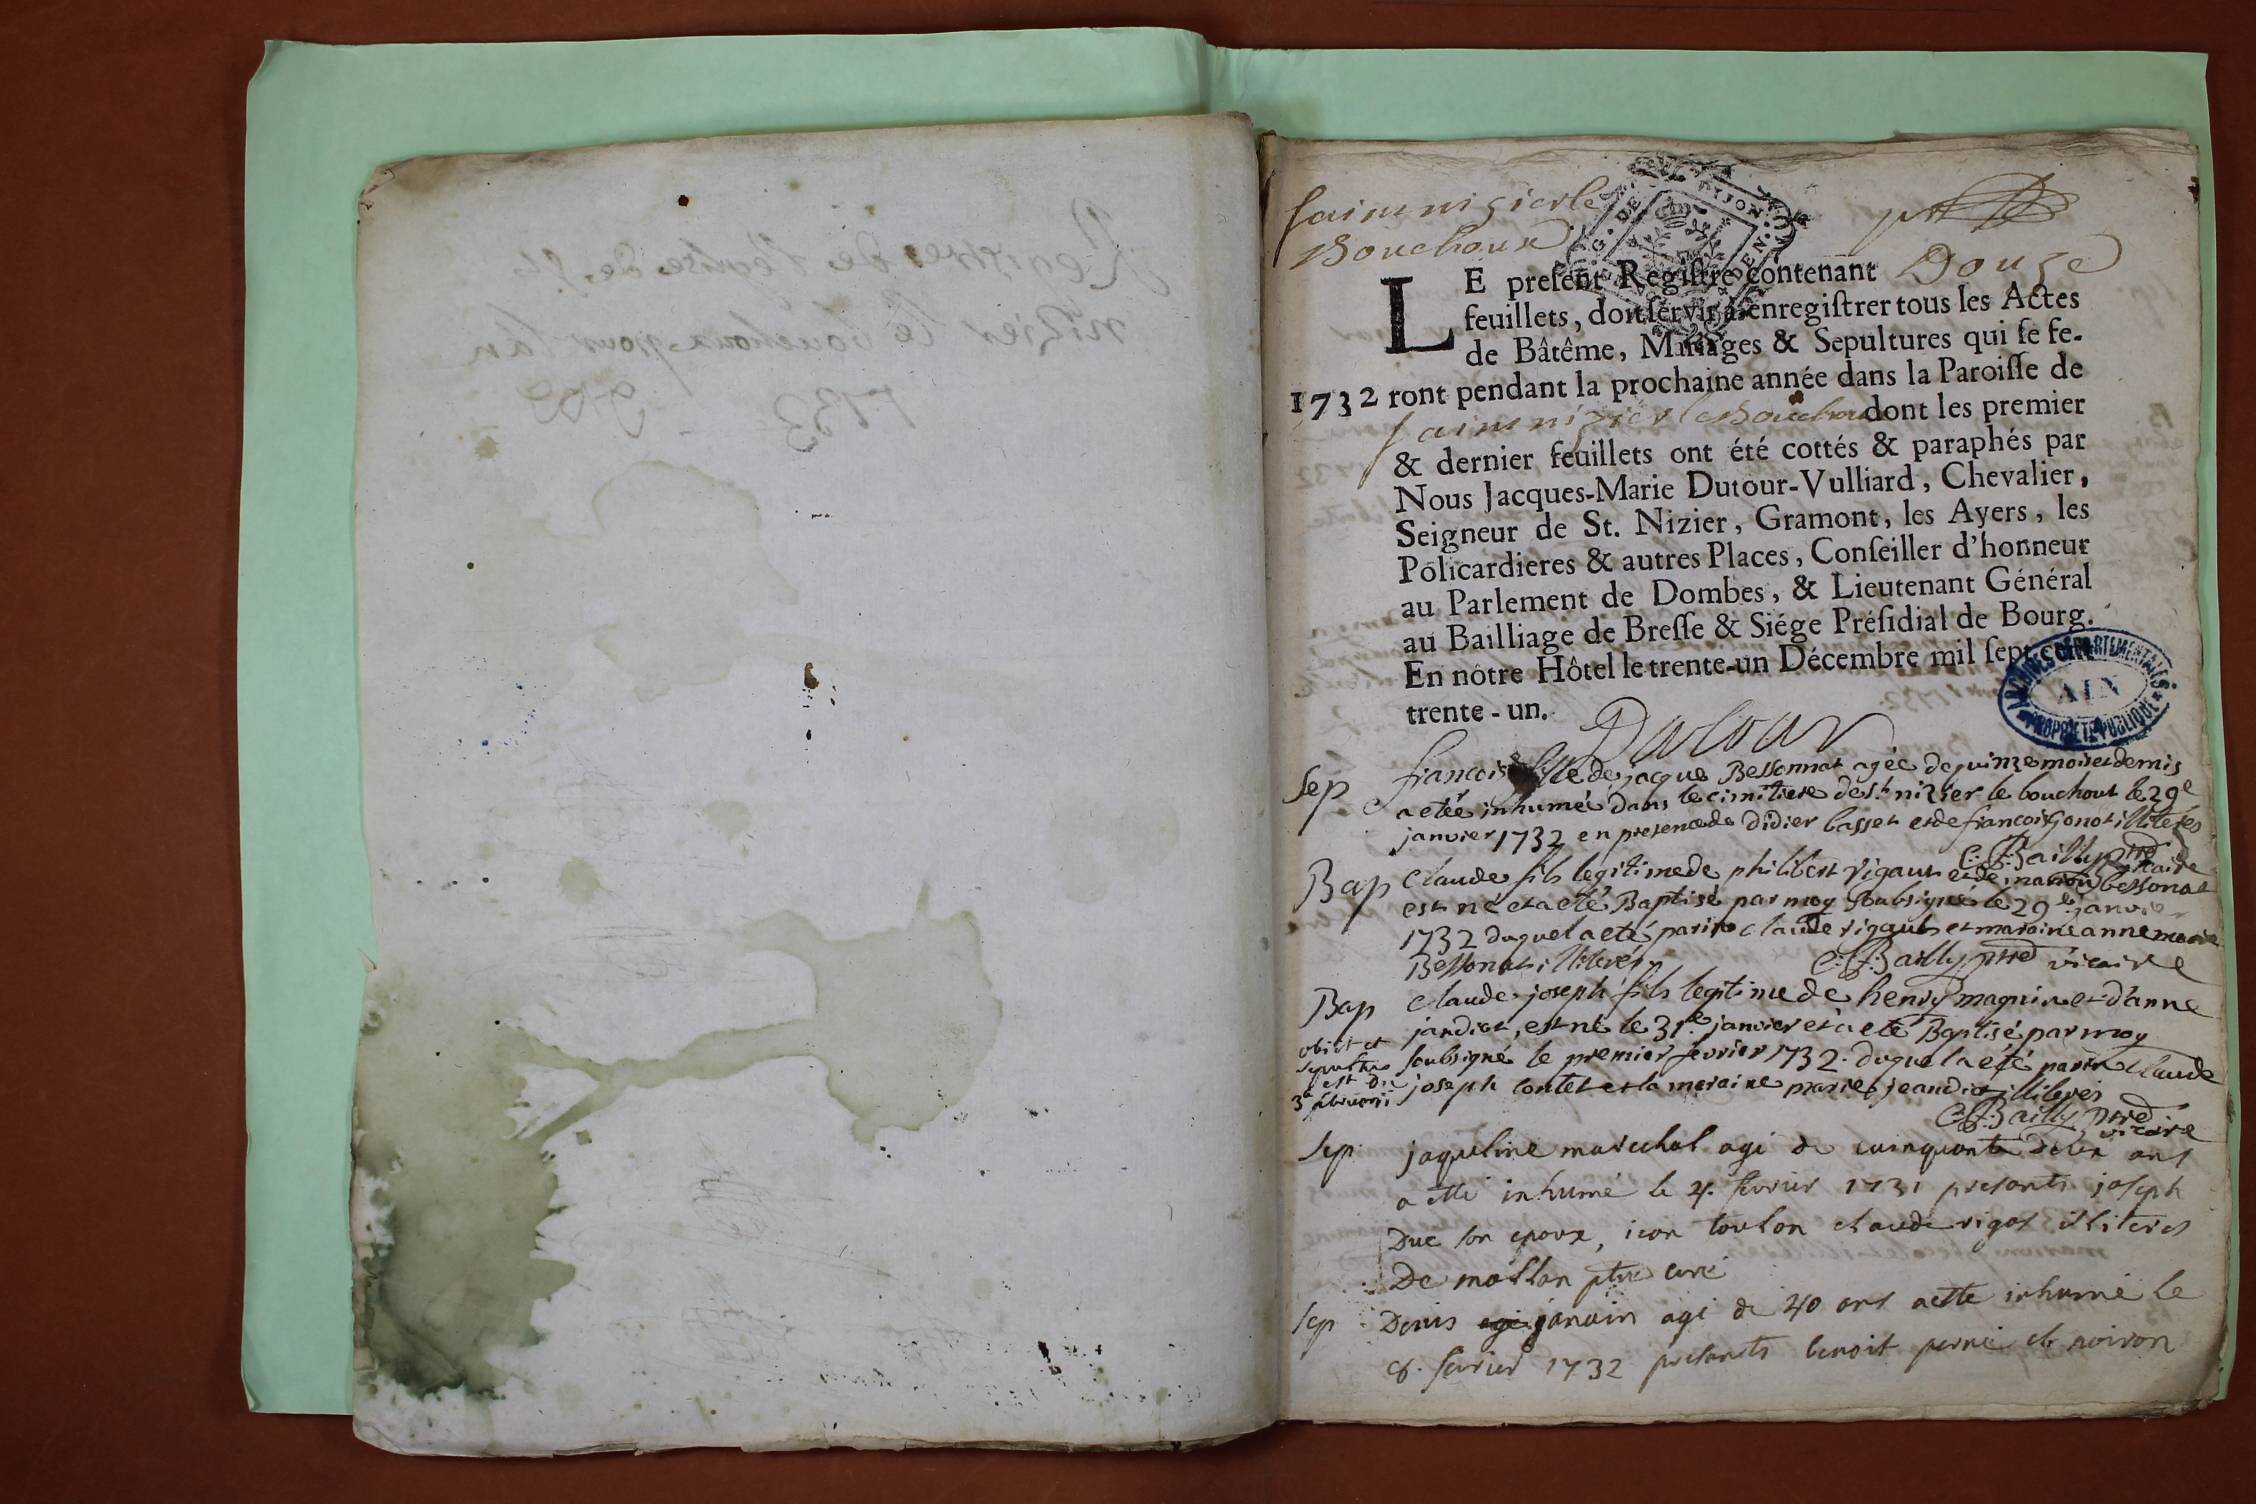 Registre de l'eglise de St
nizier le bouchoux pour l'an
1732
sainnizierle
Bouchoux
LE preſent Regiſtre contenant Douze
feuillets, doit ſervir à enregiſtrer tous les Actes
de Bâtême, Mariages & Sepultures qui ſe fe-
1732 ront pendant la prochaine année dans la Paroiſſe de
sainnizier le Bouchoux dont les premier
& dernier feuillets ont été cottés & paraphés par
Nous Jacques-Marie Dutour-Vulliard, Chevalier,
Seigneur de St. Nizier, Gramont, les Ayers, les
Policardieres & autres Places, Conſeiller d'honneur
au Parlement de Dombes, & Lieutenant Général
au Bailliage de Breſſe & Siége Préſidial de Bourg.
En nôtre Hôtel le trente-un Décembre mil ſept cent
trente-un.
ARCHIVES DÉPARTEMENTALES
AIN
PROPRIÉTÉ PUBLIQUE
Dutour
Sep francoise fille de jacque Bessonnat agée de quinze mois et demis
a etée inhumée dans le cimitiere de st nizier le bouchout le 29e
janvier 1732 en presence de Didier basset et de francois Gonot illiterés
C: F: Bailly ptre vicaire
Bap Claude fils legitime de philibert rigaut et de marion bessonat
est né et a eté Baptisé par moy soubsigné le 29e janvier
1732 duquel a eté parin claude rigaut et maraine anne marie
Bessonat illiterés C: F: Bailly ptre vicaire
Bap Claude joseph fils legitime de henry magnin et d'anne
jandiot, est né le 31e janvier et a eté Baptisé par moy
obiit et
sepultus
est die
3a februarii
soubsigné le premier fevrier 1732 duquel a eté parin Claude
joseph contet et la maraine marie jeandiot illiterés
C: F: Bailly ptre
vicaire
Sep jaqueline marechal agé de cuinquante deux ans
a etté inhumé le 4. fevrier 1731 presants joseph
Duc son epoux, jean toulon claude rigot illiteres
De mollan ptre curé
Sep Denis janvin agé de 40 ans a etté inhumé le
8. fevrier 1732 presants benoit perné et noiron